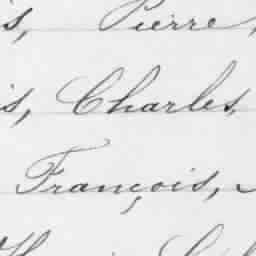 s, Pierre,
is, Charles,
François,